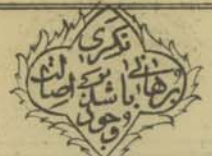 تذکری
و برهانی باشد بر اصالت
وجود